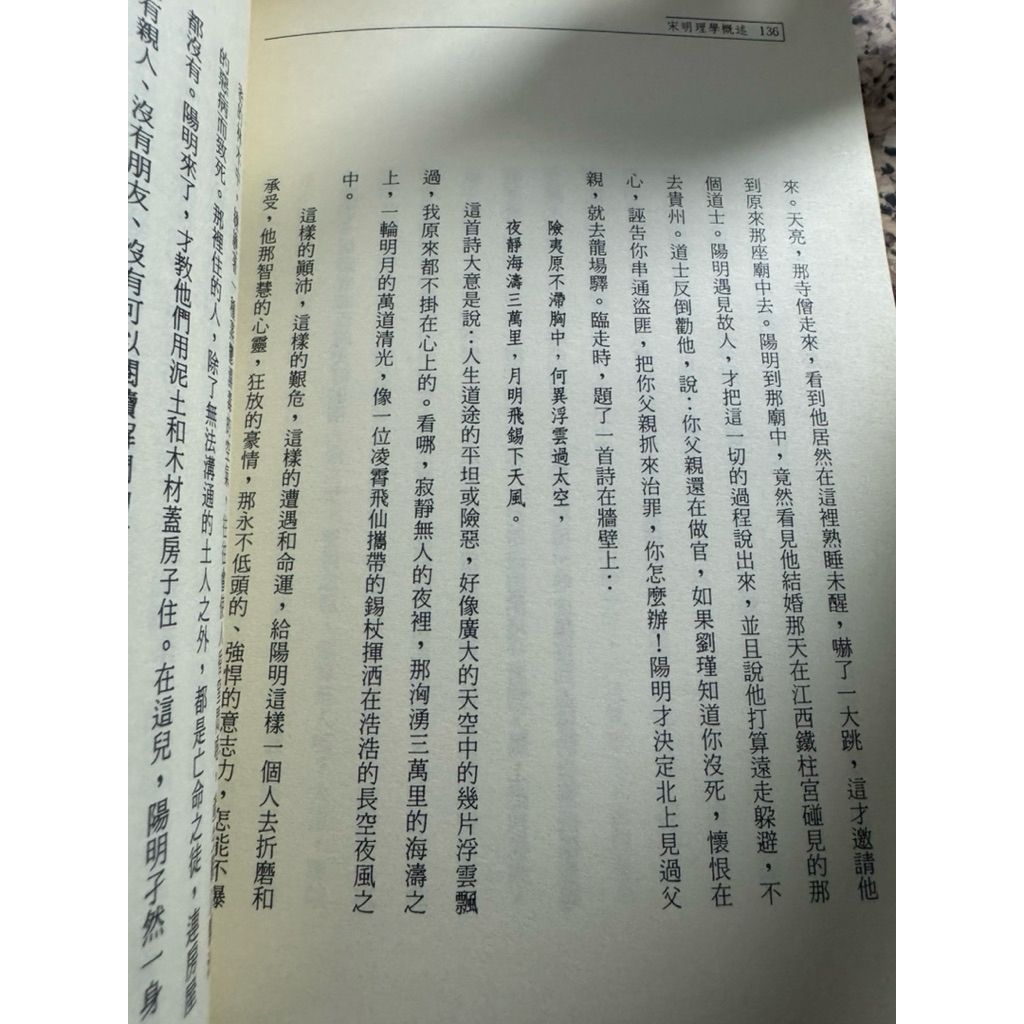 宋明理學概述 136
來。天亮，那寺僧走來，看到他居然在這裡熟睡未醒，嚇了一大跳，這才邀請他
到原來那座廟中去。陽明到那廟中，竟然看見他結婚那天在江西鐵柱宮碰見的那
個道士。陽明遇見故人，才把這一切的過程說出來，並且說他打算遠走躲避，不
去貴州。道士反倒勸他，說：你父親還在做官，如果劉瑾知道你沒死，懷恨在
心，誣告你串通盜匪，把你父親抓來治罪，你怎麼辦！陽明才決定北上見過父
親，就去龍場驛。臨走時，題了一首詩在牆壁上：
險夷原不滯胸中，何異浮雲過太空，
夜靜海濤三萬里，月明飛錫下天風。
這首詩大意是說：人生道途的平坦或險惡，好像廣大的天空中的幾片浮雲飄
過，我原來都不掛在心上的。看哪，寂靜無人的夜裡，那洶湧三萬里的海濤之
上，一輪明月的萬道清光，像一位凌霄飛仙攜帶的錫杖揮洒在浩浩的長空夜風之
中。
這樣的顚沛，這樣的艱危，這樣的遭遇和命運，給陽明這樣一個人去折磨和
承受，他那智慧的心靈，狂放的豪情，那永不低頭的、強悍的意志力，怎能不爆
的惡病而致死。那裡住的人，除了無法溝通的土人之外，都是亡命之徒，連房屋
都沒有。陽明來了，才教他們用泥土和木材蓋房子住。在這兒，陽明孑然一身
有親人、沒有朋友、沒有可以閱讀